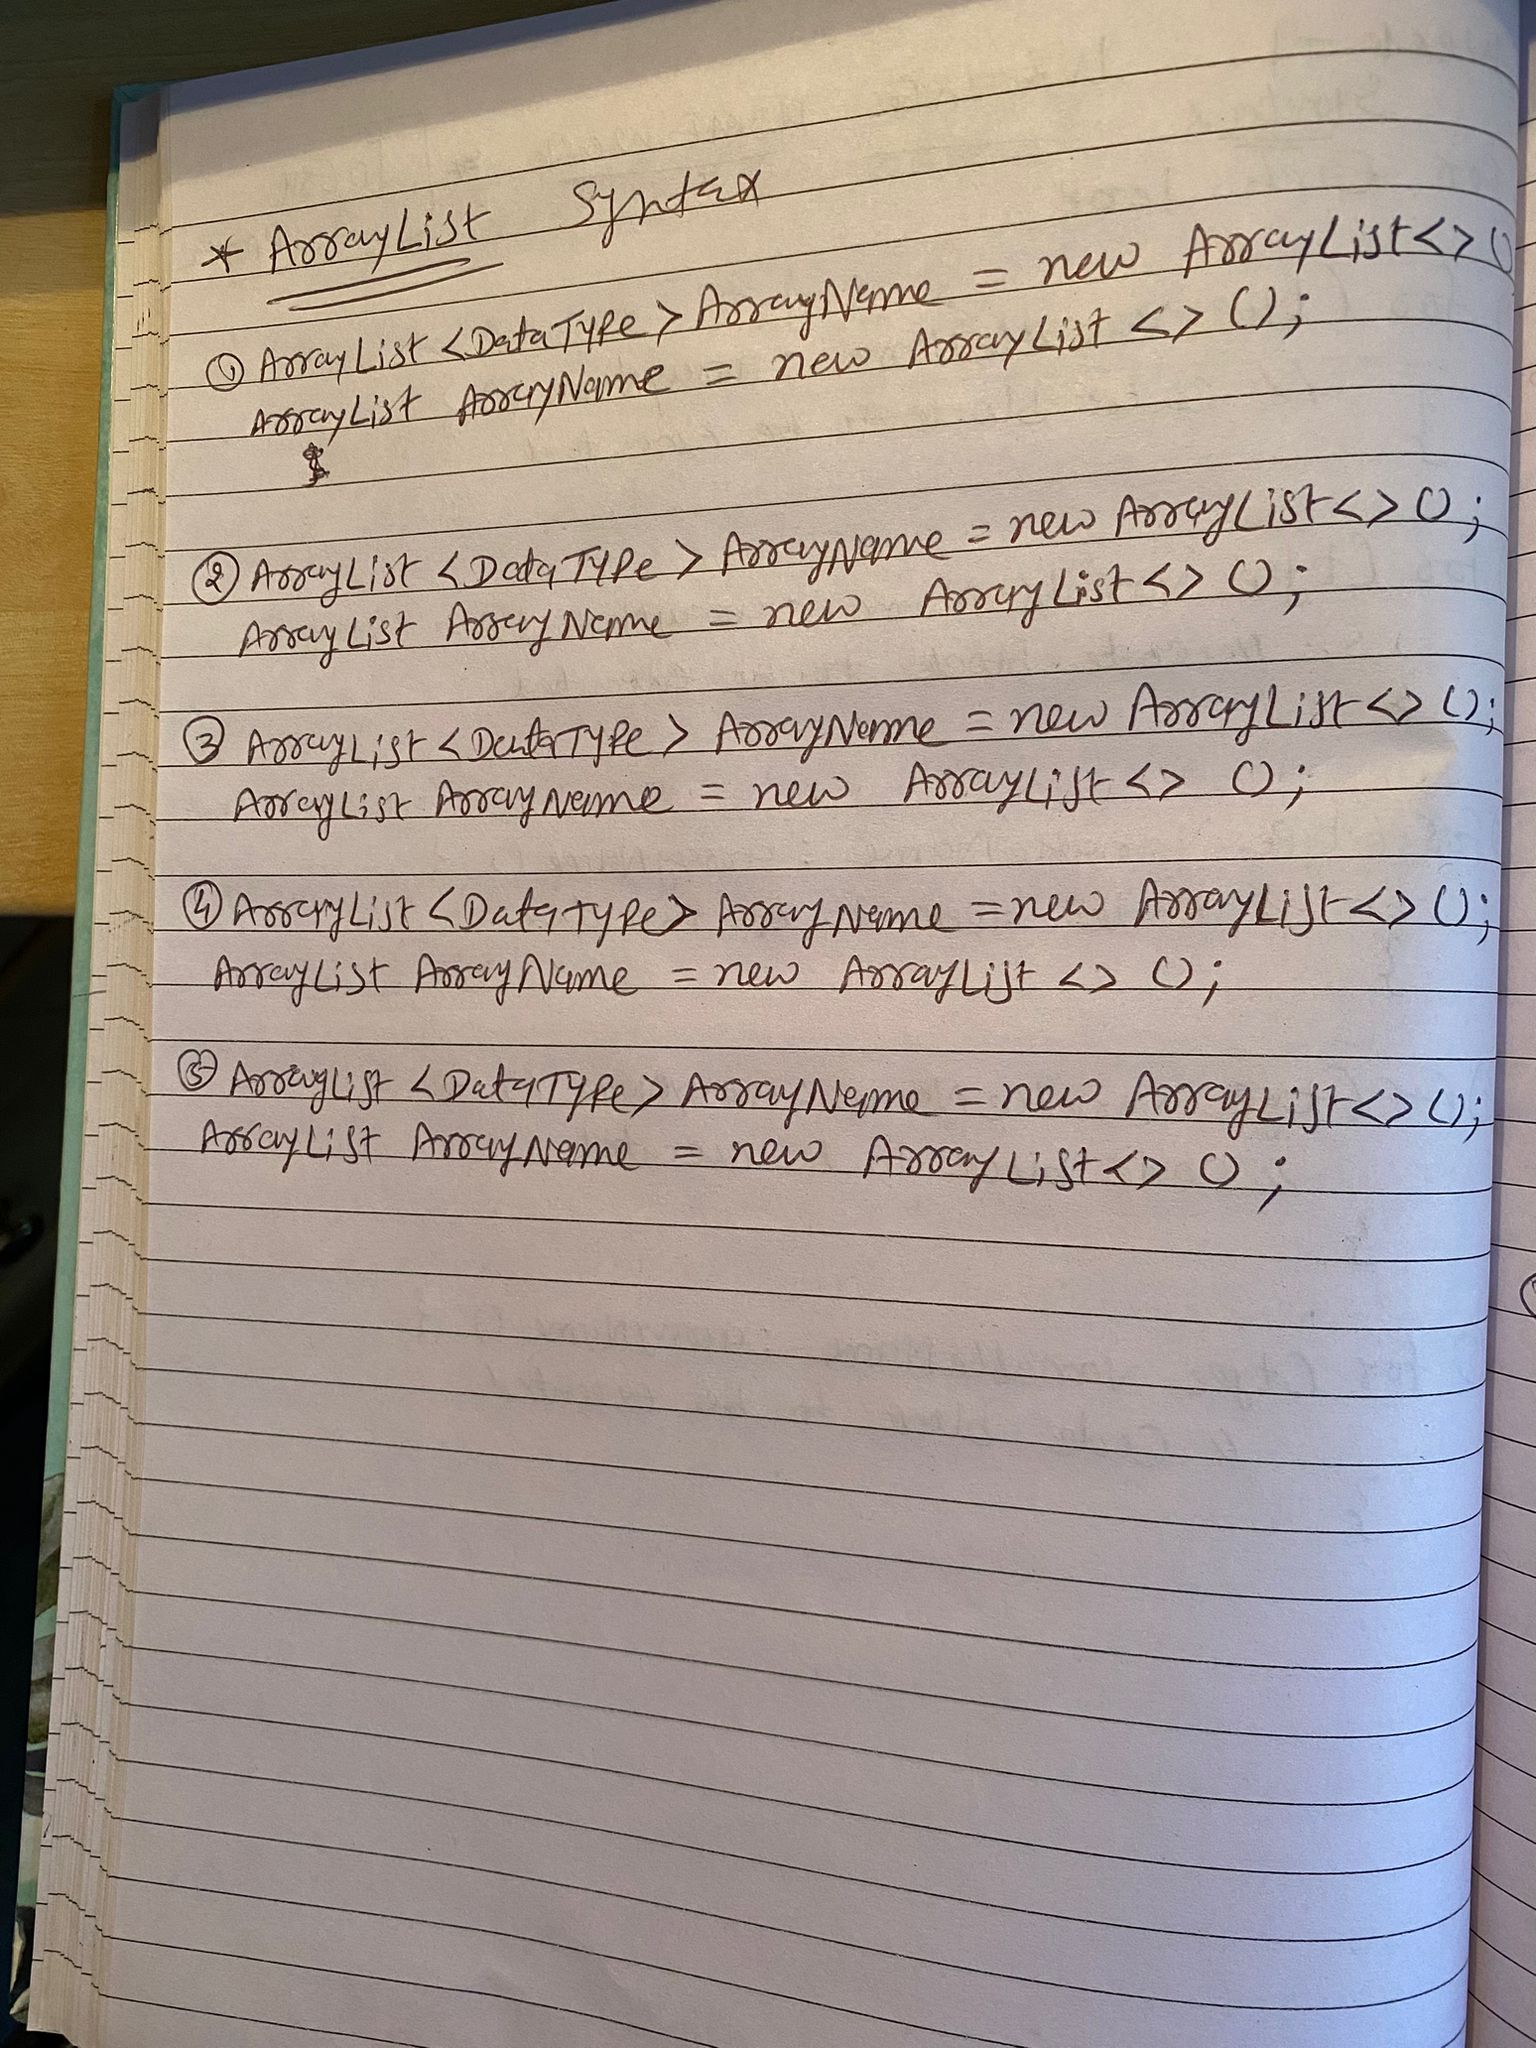 * ArrayList Syntax
① ArrayList <DataType> ArrayName = new ArrayList<> ()
ArrayList ArrayName = new ArrayList <> ();
② ArrayList <DataType> ArrayName = new ArrayList<> ();
ArrayList ArrayName = new ArrayList<> ();
③ ArrayList <DataType> ArrayName = new ArrayList<> ();
ArrayList ArrayName = new ArrayList<> ();
④ ArrayList <DataType> ArrayName = new ArrayList<> ();
ArrayList ArrayName = new ArrayList <> ();
⑤ ArrayList <DataType> ArrayName = new ArrayList<> ();
ArrayList ArrayName = new ArrayList<> ();